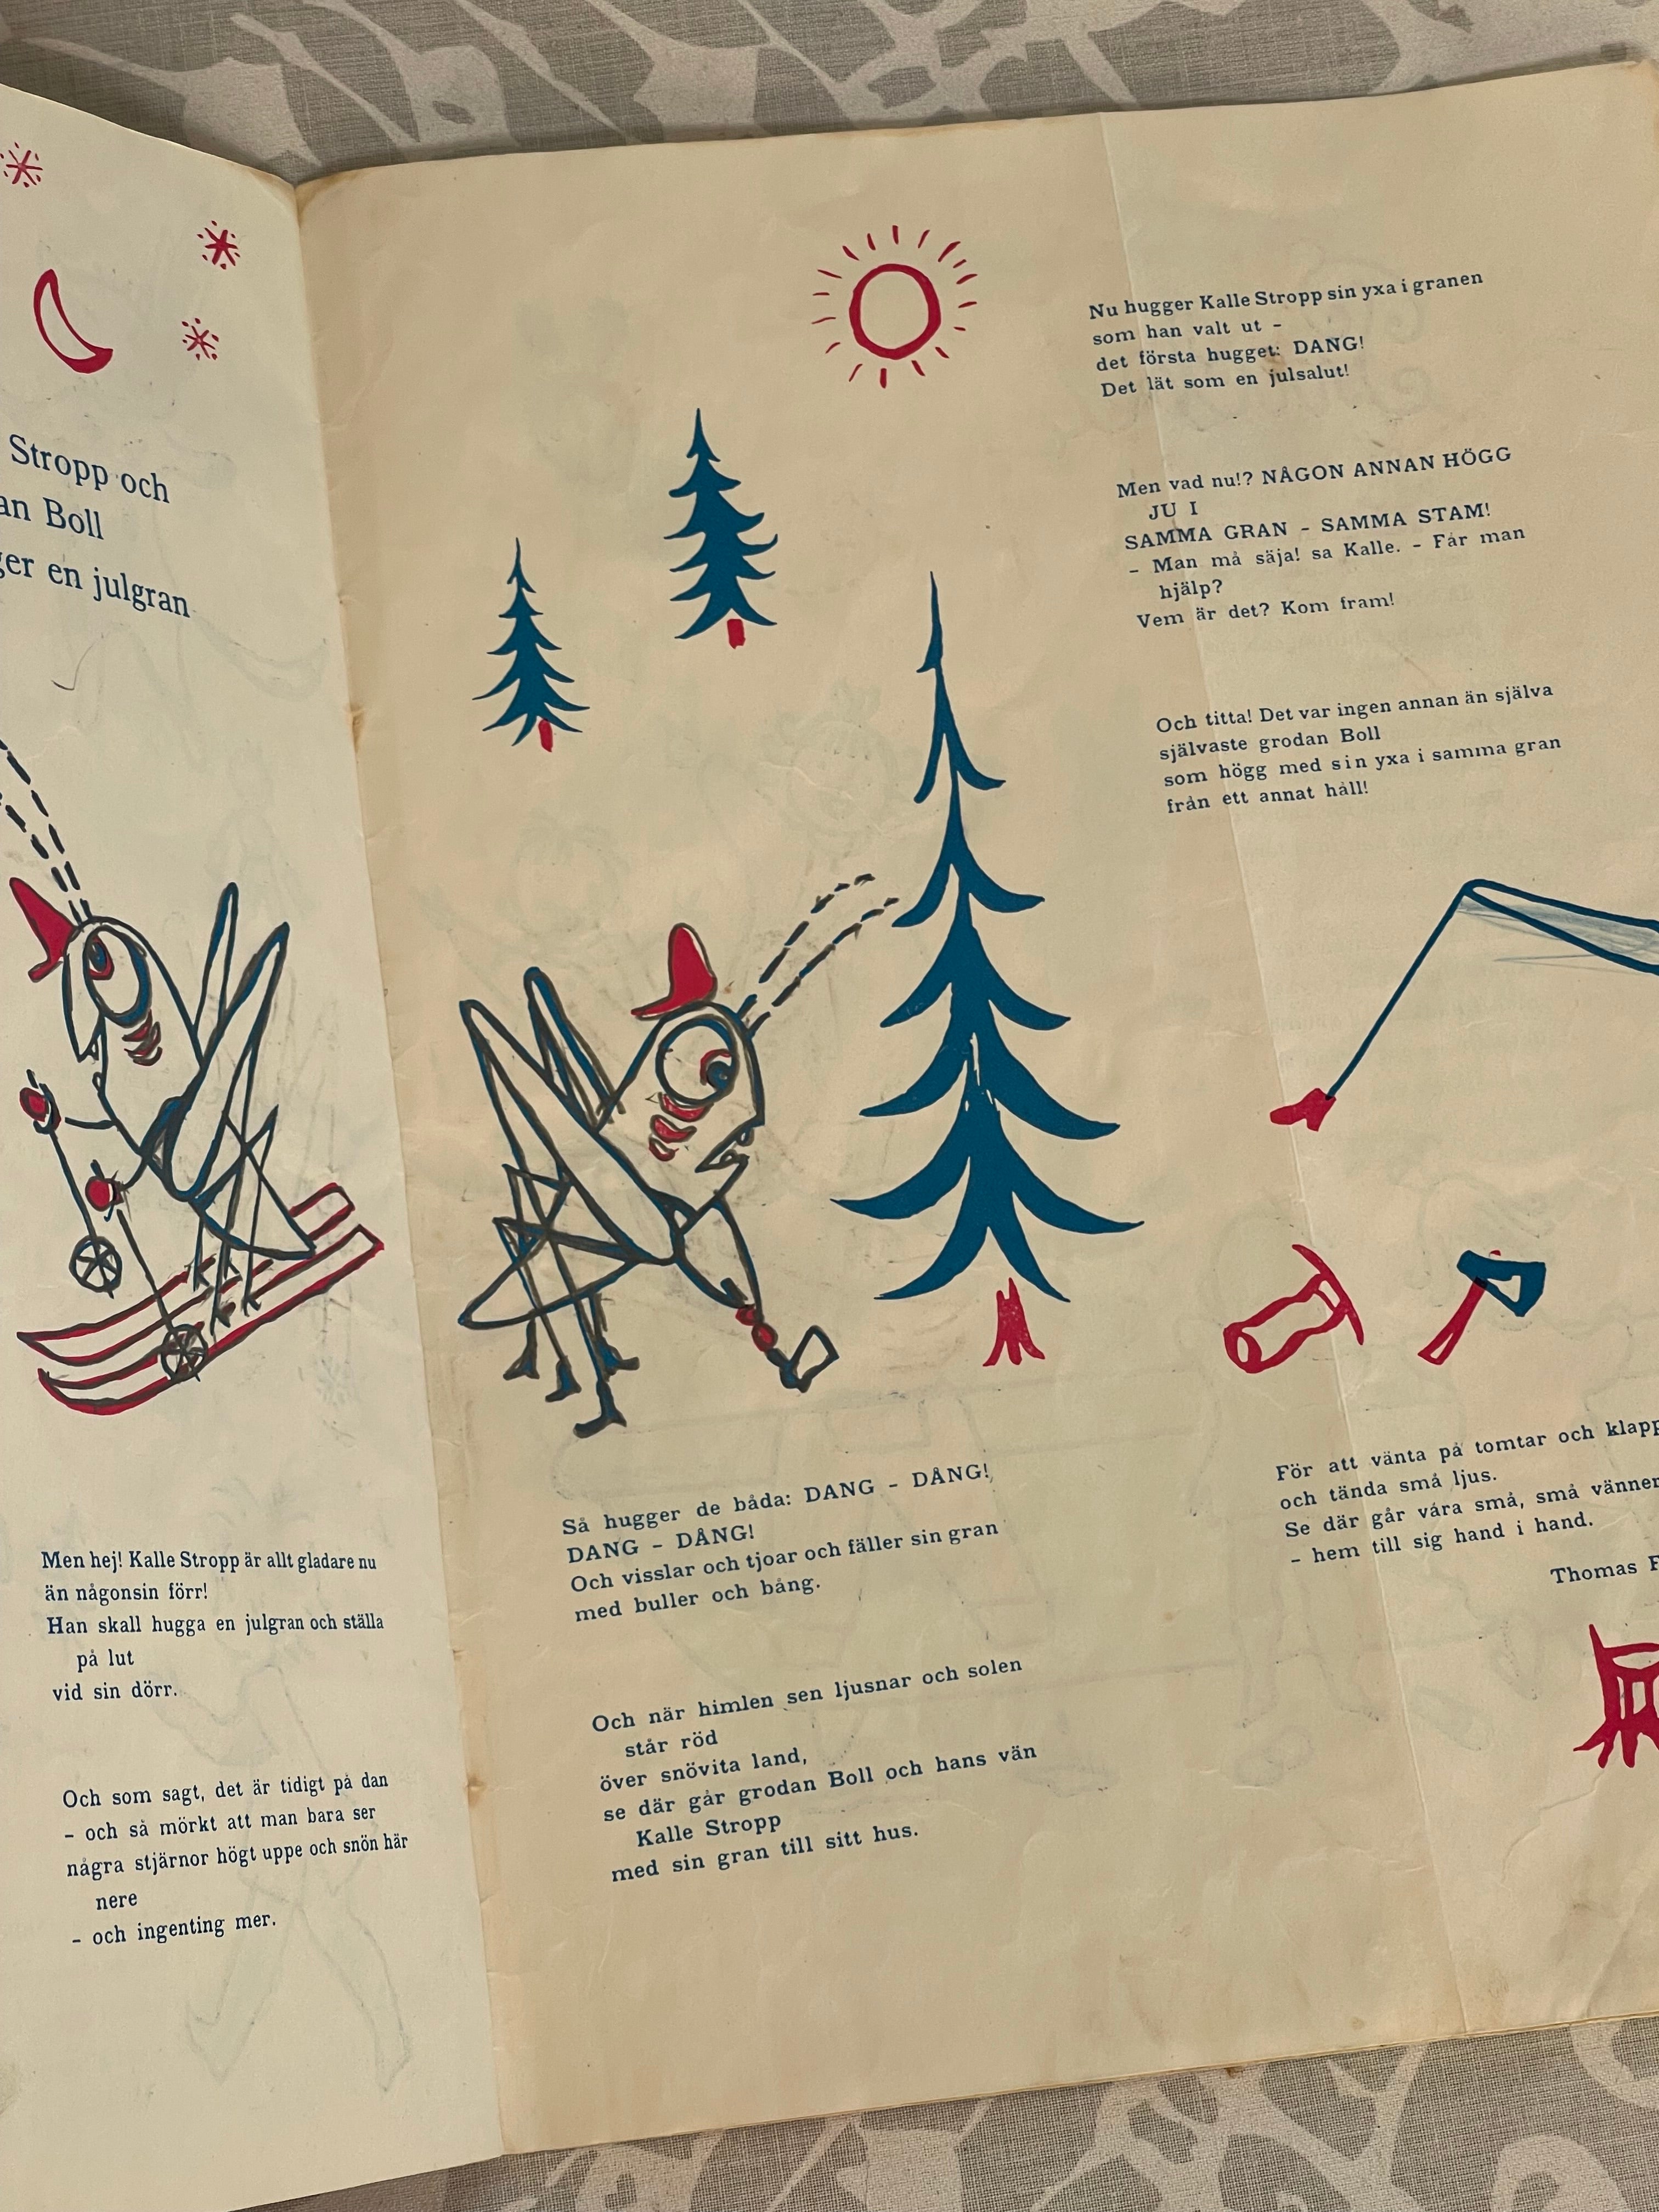 Stropp och
Boll
en julgran
Men hej! Kalle Stropp är allt gladare nu
än någonsin förr!
Han skall hugga en julgran och ställa
på lut
vid sin dörr.
Och som sagt, det är tidigt på dan
– och så mörkt att man bara ser
några stjärnor högt uppe och snön här
nere
– och ingenting mer.
Nu hugger Kalle Stropp sin yxa i granen
som han valt ut –
det första hugget: DANG!
Det lät som en julsalut!
Men vad nu!? NÅGON ANNAN HÖGG
JU I
SAMMA GRAN – SAMMA STAM!
– Man må säja! sa Kalle. – Får man
hjälp?
Vem är det? Kom fram!
Och titta! Det var ingen annan än själva
självaste grodan Boll
som högg med sin yxa i samma gran
från ett annat håll!
Så hugger de båda: DANG – DÅNG!
DANG – DÅNG!
Och visslar och tjoar och fäller sin gran
med buller och bång.
Och när himlen sen ljusnar och solen
står röd
över snövita land,
se där går grodan Boll och hans vän
Kalle Stropp
med sin gran till sitt hus.
För att vänta på tomtar och klapp
och tända små ljus.
Se där går våra små, små vänner
– hem till sig hand i hand.
Thomas F